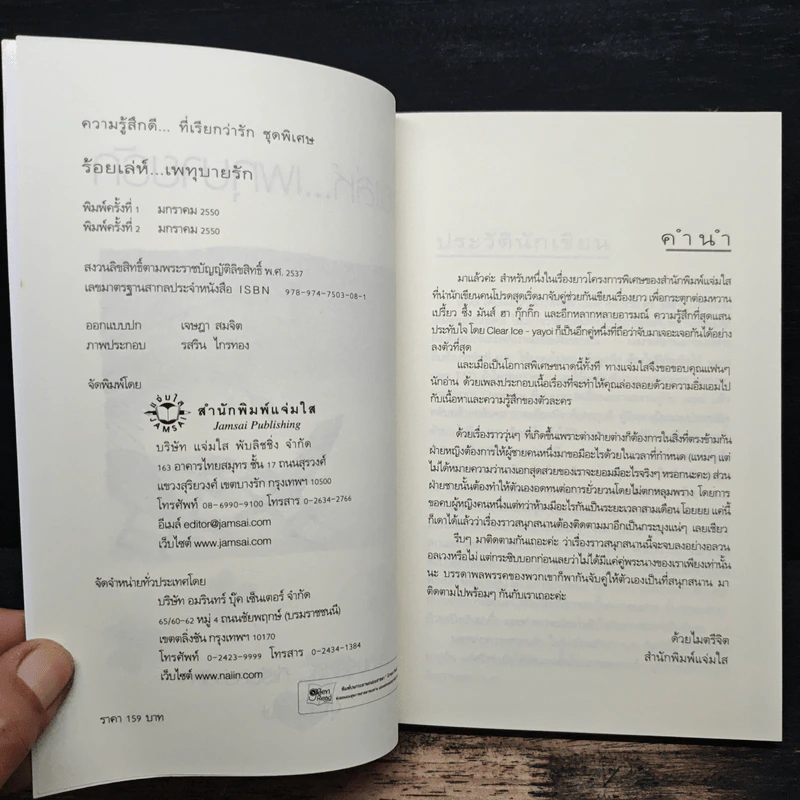 ความรู้สึกดี... ที่เรียกว่ารัก ชุดพิเศษ
ร้อยเล่ห์...เพทุบายรัก
พิมพ์ครั้งที่ 1 มกราคม 2550
พิมพ์ครั้งที่ 2 มกราคม 2550
สงวนลิขสิทธิ์ตามพระราชบัญญัติลิขสิทธิ์ พ.ศ. 2537
เลขมาตรฐานสากลประจำหนังสือ ISBN 978-974-7503-08-1
ออกแบบปก เจษฎา สมจิต
ภาพประกอบ รสริน ไกรทอง
จัดพิมพ์โดย
แจ่มใส
JAMSAI
สำนักพิมพ์แจ่มใส
Jamsai Publishing
บริษัท แจ่มใส พับลิชชิ่ง จำกัด
163 อาคารไทยสมุทร ชั้น 17 ถนนสุรวงศ์
แขวงสุริยวงศ์ เขตบางรัก กรุงเทพฯ 10500
โทรศัพท์ 08-6990-9100 โทรสาร 0-2634-2766
อีเมล์ editor@jamsai.com
เว็บไซต์ www.jamsai.com
จัดจำหน่ายทั่วประเทศโดย
บริษัท อมรินทร์ บุ๊ค เซ็นเตอร์ จำกัด
65/60-62 หมู่ 4 ถนนชัยพฤกษ์ (บรมราชชนนี)
เขตตลิ่งชัน กรุงเทพฯ 10170
โทรศัพท์ 0-2423-9999 โทรสาร 0-2434-1384
เว็บไซต์ www.naiin.com
ราคา 159 บาท
คำนำ
มาแล้วค่ะ สำหรับหนึ่งในเรื่องยาวโครงการพิเศษของสำนักพิมพ์แจ่มใส
ที่นำนักเขียนคนโปรดสุดเริ่ดมาจับคู่ช่วยกันเขียนเรื่องยาว เพื่อกระตุกต่อมหวาน
เปรี้ยว ซึ้ง มันส์ ฮา กุ๊กกิ๊ก และอีกหลากหลายอารมณ์ ความรู้สึกที่สุดแสน
ประทับใจ โดย Clear Ice - yayoi ก็เป็นอีกคู่หนึ่งที่ถือว่าจับมาเจอะเจอกันได้อย่าง
ลงตัวที่สุด
และเมื่อเป็นโอกาสพิเศษขนาดนี้ทั้งที ทางแจ่มใสจึงขอขอบคุณแฟนๆ
นักอ่าน ด้วยเพลงประกอบเนื้อเรื่องที่จะทำให้คุณล่องลอยด้วยความอิ่มเอมไป
กับเนื้อหาและความรู้สึกของตัวละคร
ด้วยเรื่องราววุ่นๆ ที่เกิดขึ้นเพราะต่างฝ่ายต่างก็ต้องการในสิ่งที่ตรงข้ามกัน
ฝ่ายหญิงต้องการให้ผู้ชายคนหนึ่งมาขอมีอะไรด้วยในเวลาที่กำหนด (แหมๆ แต่
ไม่ได้หมายความว่านางเอกสุดสวยของเราจะยอมมีอะไรจริงๆ หรอกนะคะ) ส่วน
ฝ่ายชายนั้นต้องทำให้ตัวเองอดทนต่อการยั่วยวนโดยไม่ตกหลุมพราง โดยการ
ขอคบผู้หญิงคนหนึ่งแต่ว่าห้ามมีอะไรกันเป็นระยะเวลาสามเดือน โอยยย แค่นี้
ก็เดาได้แล้วว่าเรื่องราวสนุกสนานต้องติดตามมาอีกเป็นกระบุงแน่ๆ เลยเชียว
รีบๆ มาติดตามกันเถอะค่ะ ว่าเรื่องราวสนุกสนานนี้จะจบลงอย่างอลวน
อลเวงหรือไม่ แต่กระซิบบอกก่อนเลยว่าไม่ได้มีแค่คู่พระนางของเราเพียงเท่านั้น
นะ บรรดาพลพรรคของพวกเขาก็พากันจับคู่ให้ตัวเองเป็นที่สนุกสนาน มา
ติดตามไปพร้อมๆ กันกับเราเถอะค่ะ
ด้วยไมตรีจิต
สำนักพิมพ์แจ่มใส